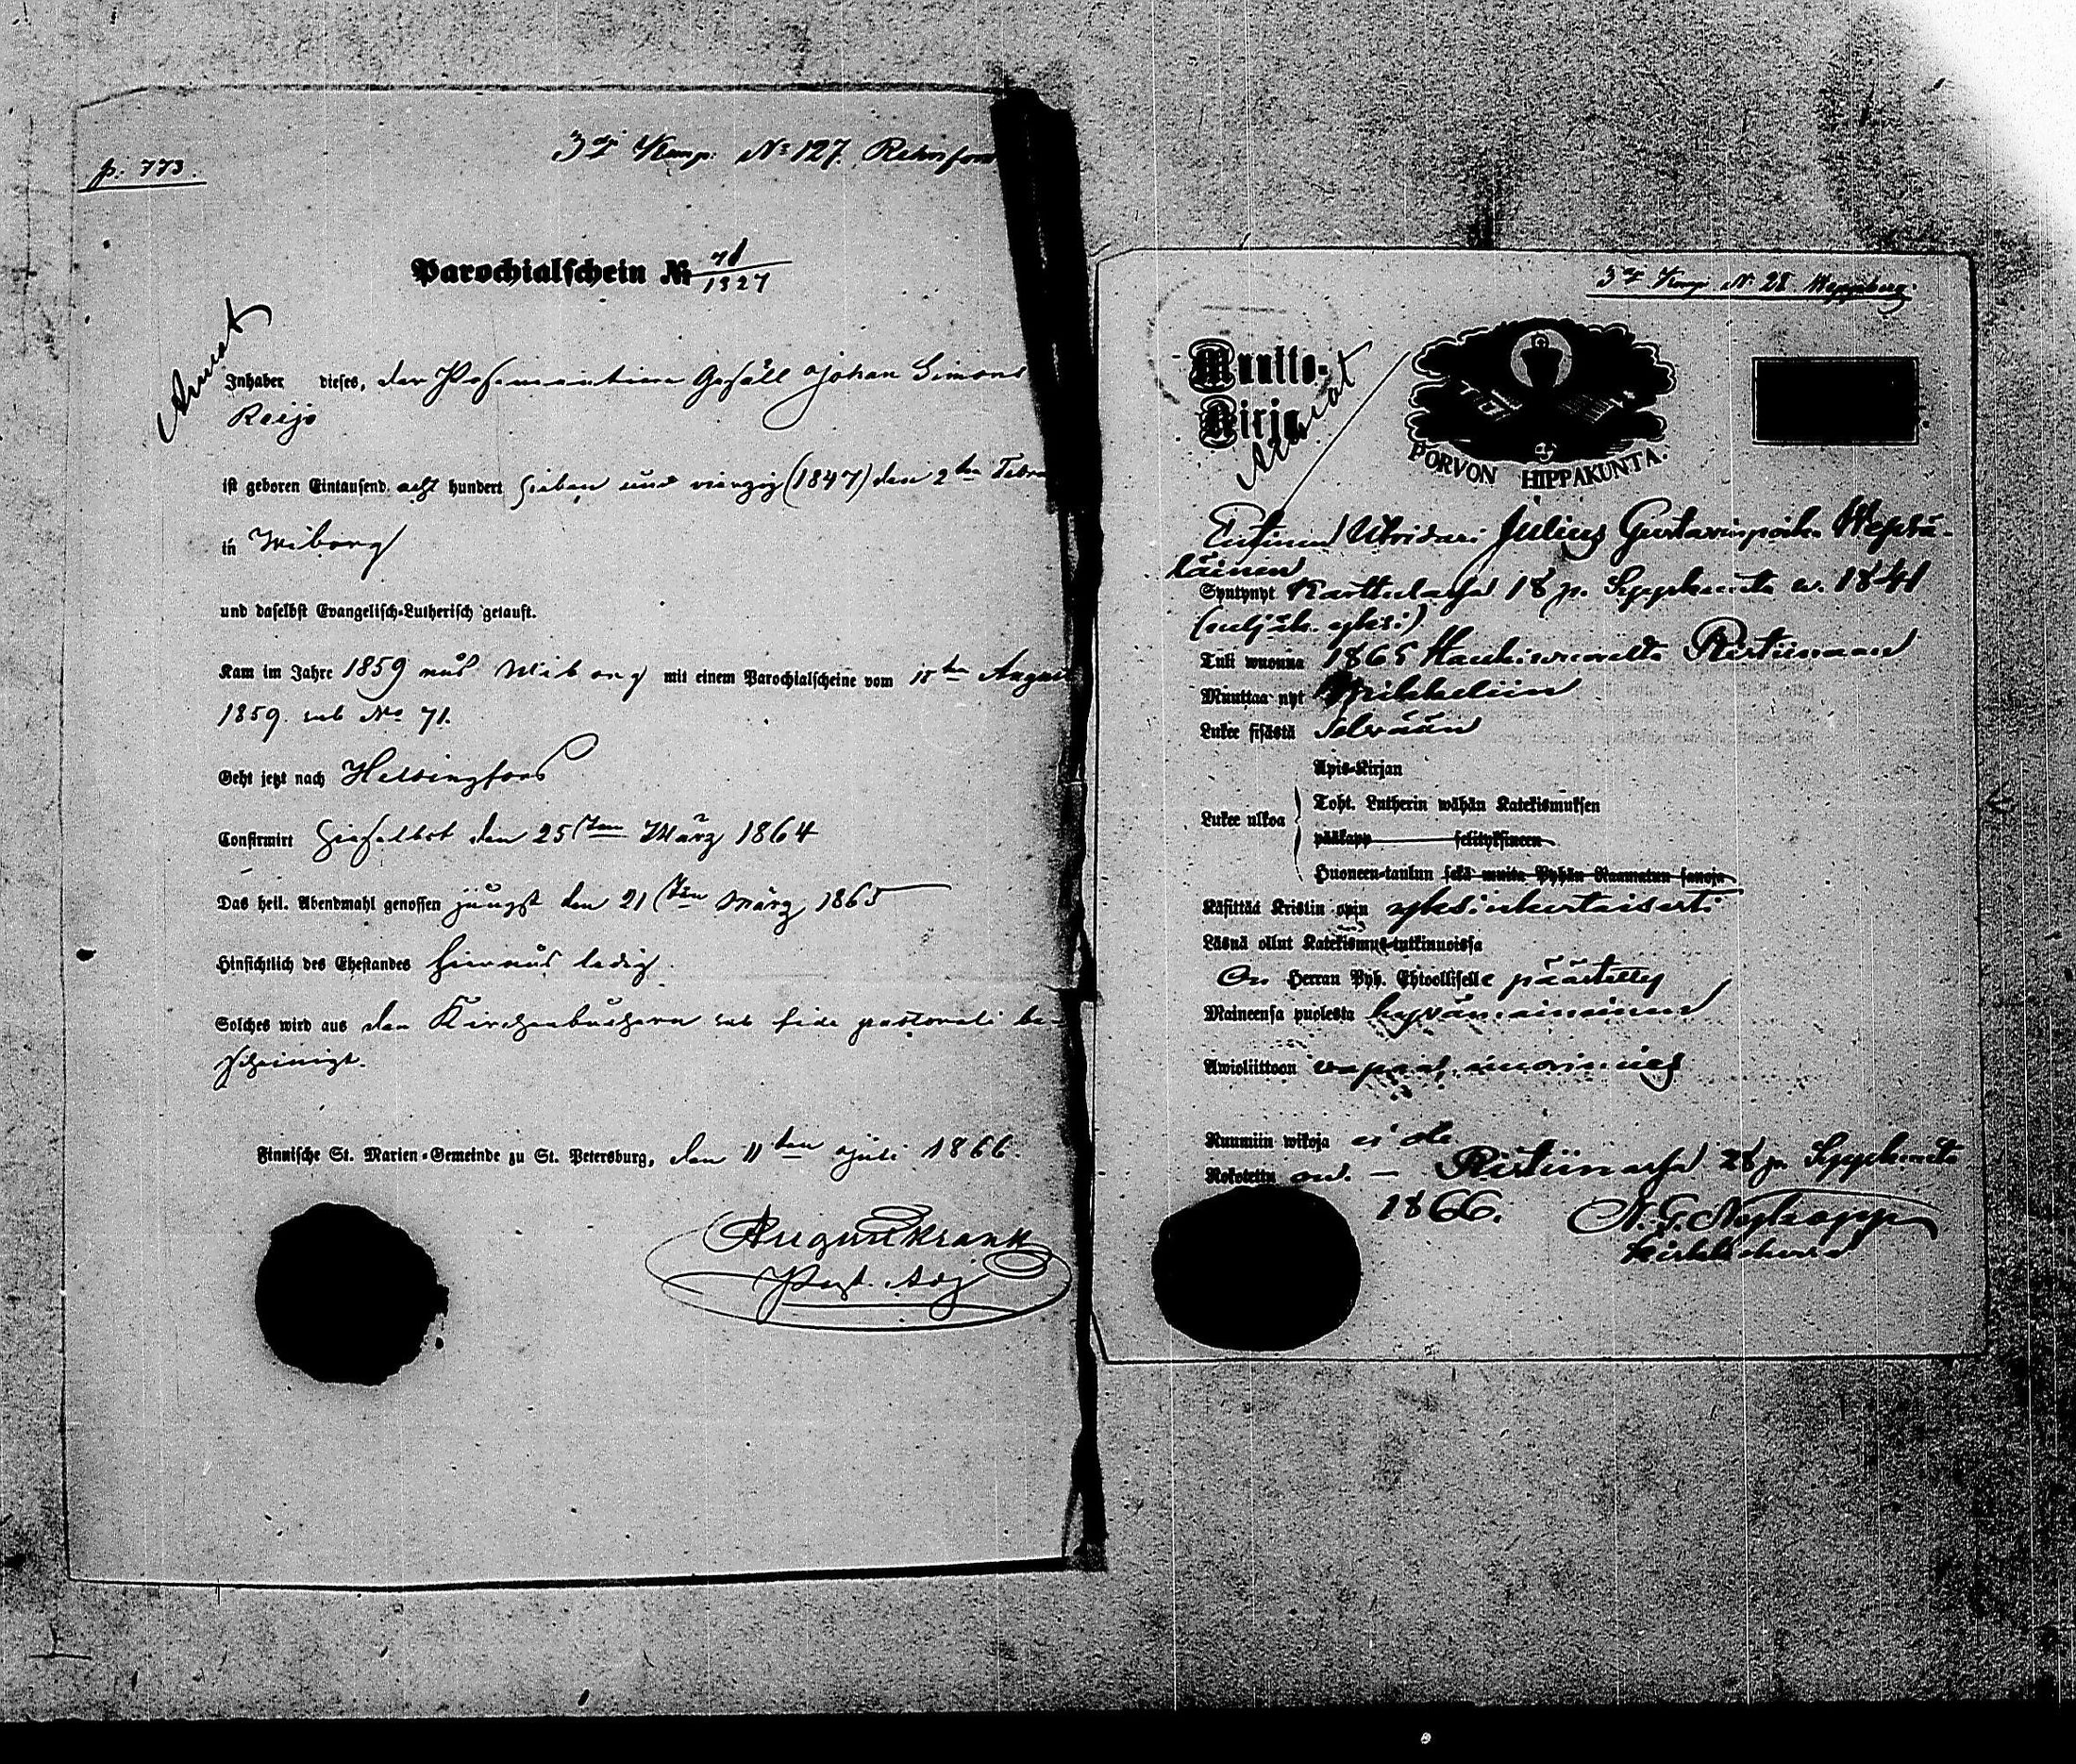 p: 773.
3 Komp. No 127. Rehnfors
Parochialschein No 71/1327
Inhaber dieses, der Posamentirer Gesäll Johan Simons
Reijo
ist geboren Eintausend acht hundert sieben und vierzig (1847) den 2ten Febru
in Wiborg
und daselbst Evangelisch-Lutherisch getauft.
Kam im Jahre 1859 aus Wiborg mit einem Parochialscheine vom 15ten August
1859. sub No 71.
Geht jetzt nach Helsingfors
Confirmirt hieselbst den 25sten März 1864
Das heil. Abendmahl genossen jüngst den 21sten März 1865
Hinsichtlich des Ehestandes hieraus ledig.
Solches wird aus den Kirchenbüchern sub fide pastorali be-
scheinigt.
Finnische St. Marien-Gemeinde zu St. Petersburg, den 11ten Juli 1866.
August Krank
Past. Adj
3 Komp No 28 Weppberg
Muutto-
Kirja
PORVON HIPPAKUNTA.
Entinen Julius Gustavinpoika Wepsä-
läinen
Syntynyt Karttulassa 18 p. Syyskuuta w. 1841
(neljäk. yksi)
Tuli wuonna 1865 Haukivuorelta Ristiinaan
Muuttaa nyt Mikkeliin
Lukee sisästä Selvään
Lukee ulkoa
Apis-Kirjan
Toht. Lutherin wähän Katekismuksen
pääkapp selityksineen
Huoneen-taulun sekä muita Pyhän Raamatun sanoja
Käsittää Kristin opin yksinkertaisesti
Läsnä ollut Katekismus-tutkinnoissa
On Herran Pyh. Ehtoolliselle päästetty
Maineensa puolesta hyvänmaineinen
Awioliittoon vapaa, nuorimies
Ruumiin wikoja ei ole
Rokotettu on. — Ristiinassa 28 p. Syyskuuta
1866.